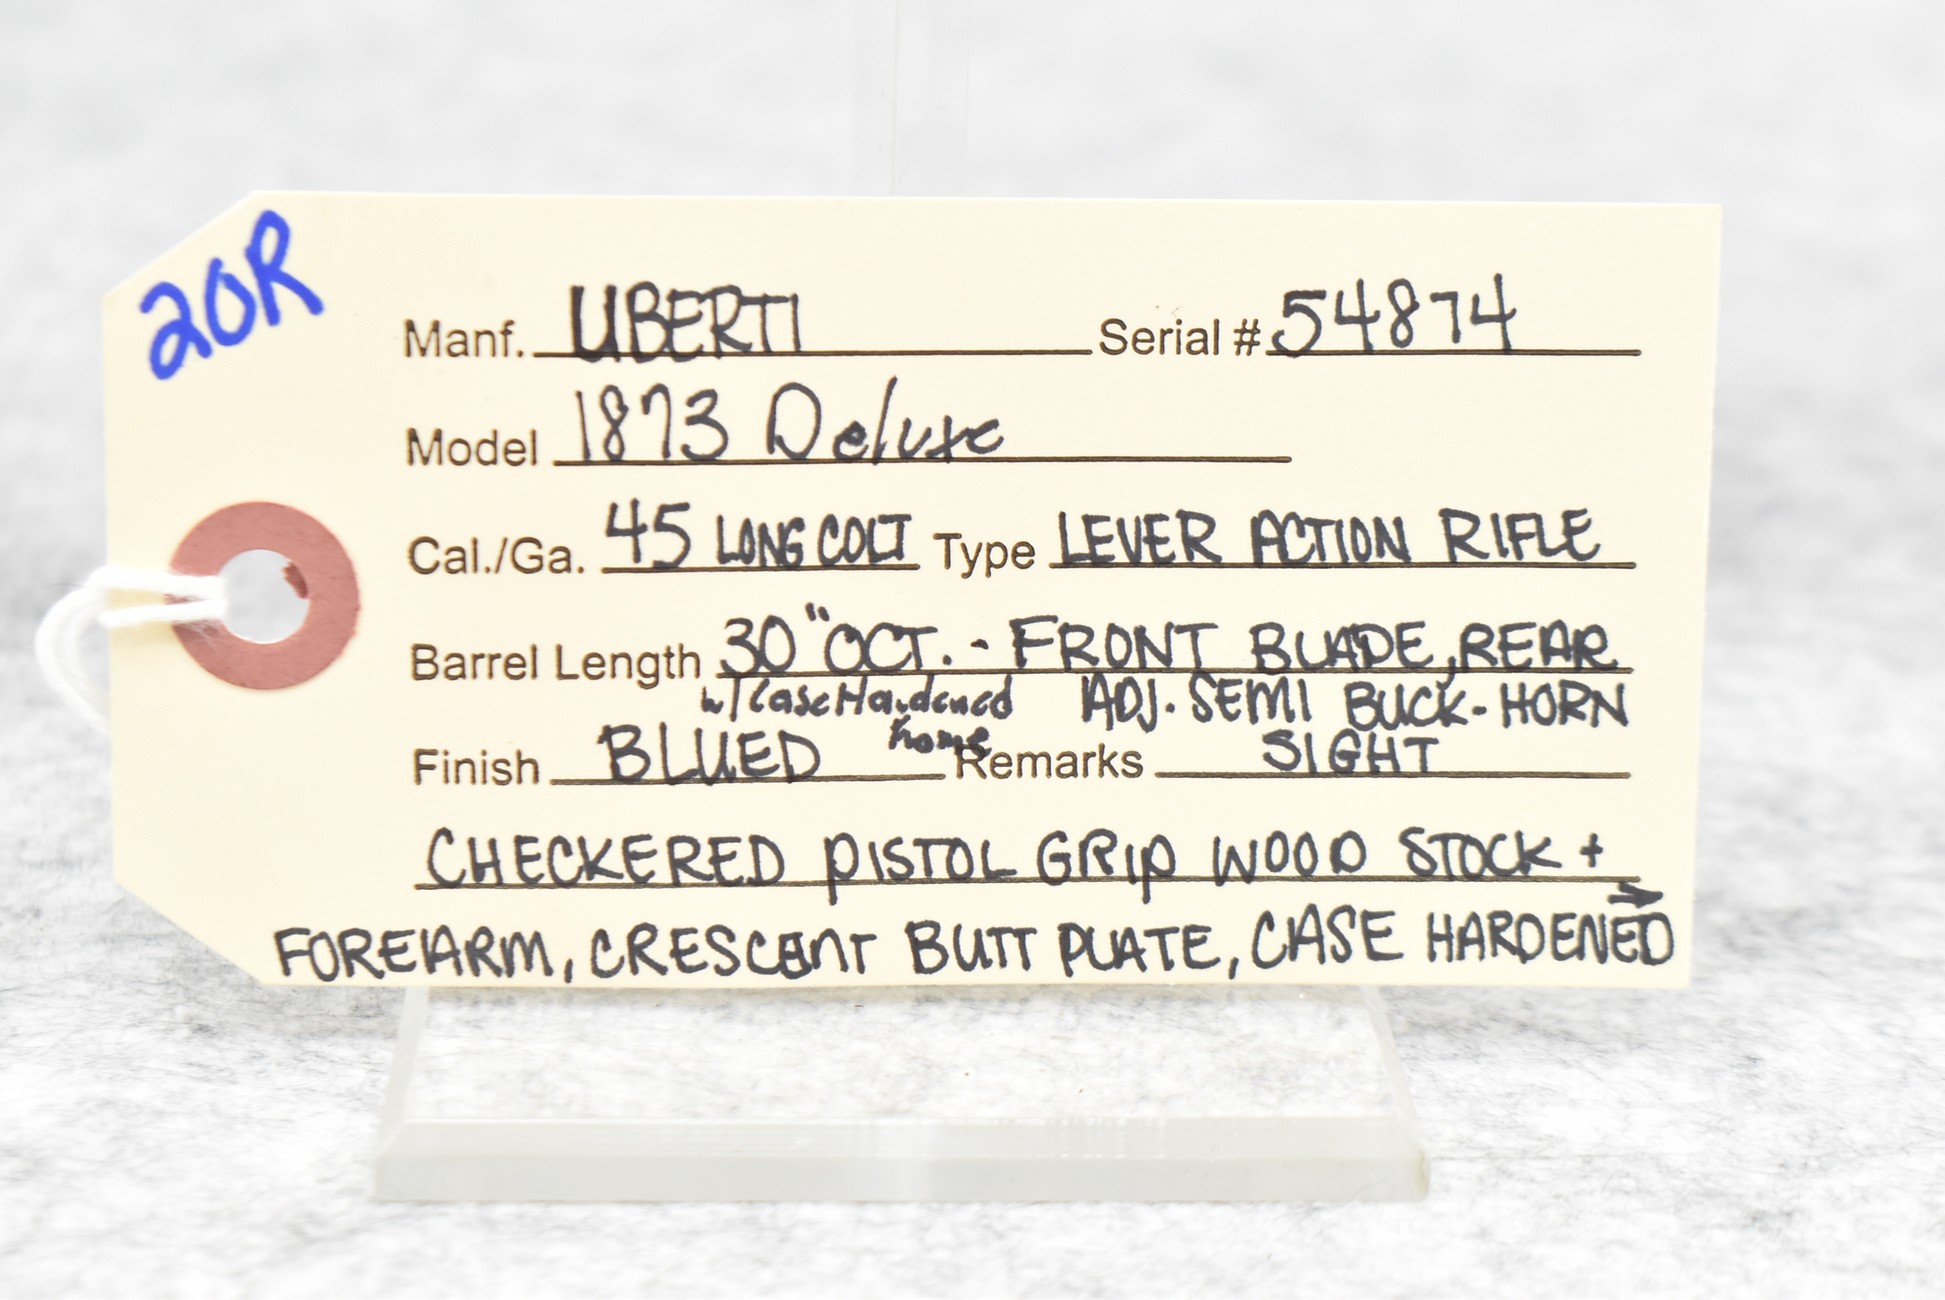 20R
Manf. UBERTI Serial # 54874
Model 1873 Deluxe
Cal./Ga. 45 LONG COLT Type LEVER ACTION RIFLE
Barrel Length 30" OCT. - FRONT BLADE, REAR
w/ Case Hardened ADJ. SEMI BUCK-HORN
Finish BLUED frame Remarks SIGHT
CHECKERED PISTOL GRIP WOOD STOCK +
FOREARM, CRESCENT BUTT PLATE, CASE HARDENED →